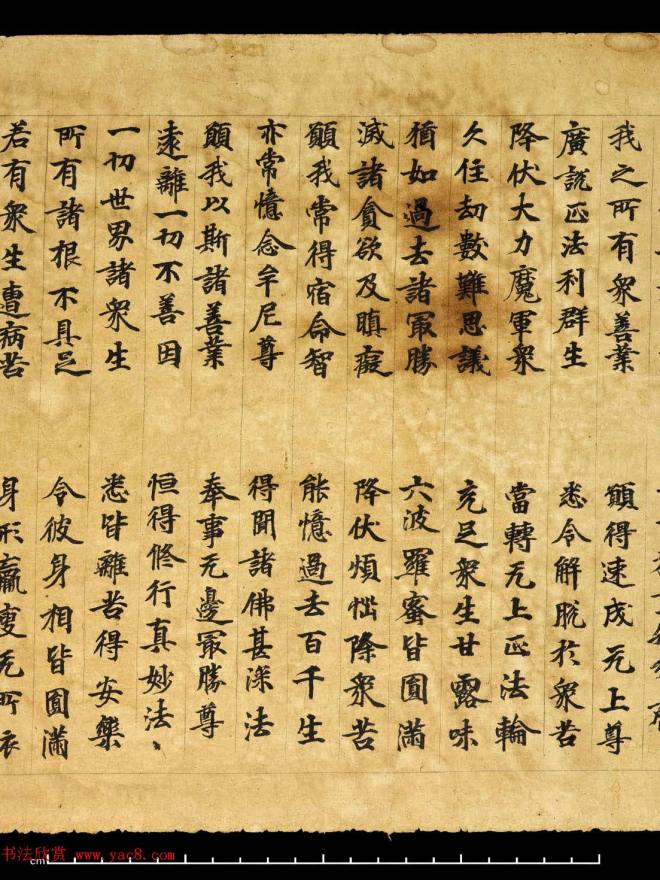 我之所有衆善業 願得速成无上尊
廣説正法利群生 悉令解脱於衆苦
降伏大力魔軍衆 當轉无上正法輪
久住劫數難思議 充足衆生甘露味
猶如過去諸冣勝 六波羅蜜皆圎滿
滅諸貪欲及瞋癡 降伏煩惱除衆苦
願我常得宿命智 能憶過去百千生
亦常憶念牟尼尊 得聞諸佛甚深法
願我以斯諸善業 奉事无邊冣勝尊
遠離一切不善因 恒得修行真妙法
一切世界諸衆生 悉皆離苦得安樂
所有諸根不具足 令彼身相皆圎滿
若有衆生遭病苦 身形羸瘦无所依
书法欣赏 www.yac8.com
cm